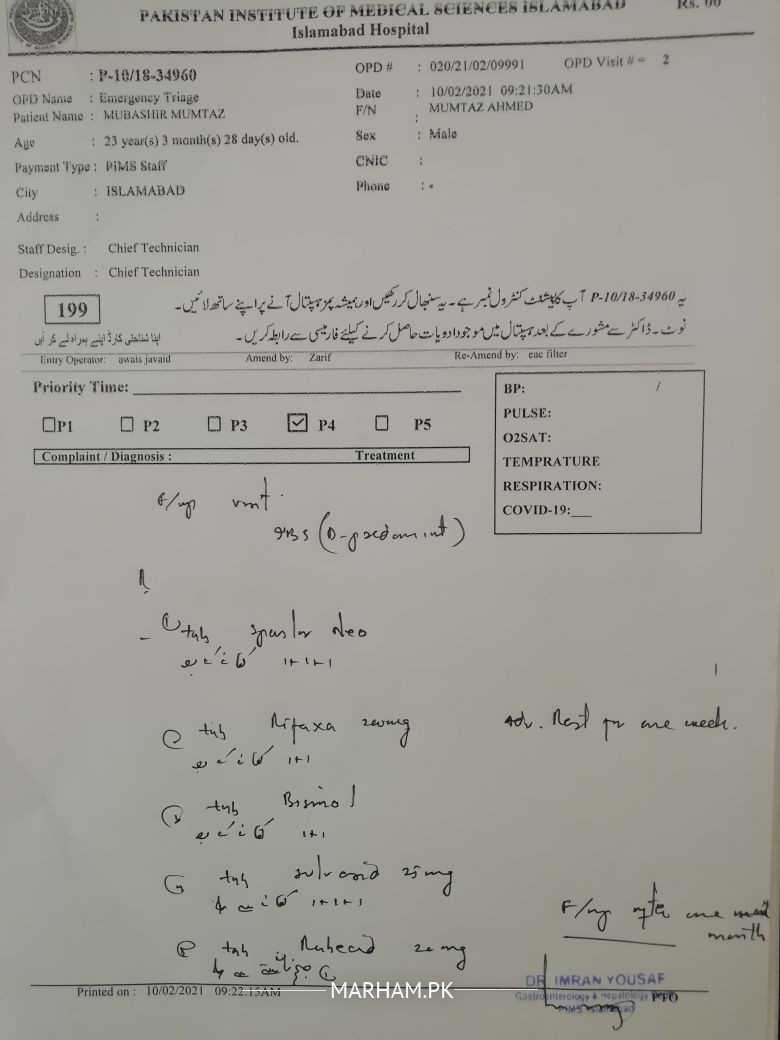 PAKISTAN INSTITUTE OF MEDICAL SCIENCES ISLAMABAD
Rs. 00
Islamabad Hospital
PCN : P-10/18-34960
OPD # : 020/21/02/09991 OPD Visit # = 2
OPD Name : Emergency Triage
Date : 10/02/2021 09:21:30AM
Patient Name : MUBASHIR MUMTAZ
F/N : MUMTAZ AHMED
Age : 23 year(s) 3 month(s) 28 day(s) old.
Sex : Male
Payment Type : PIMS Staff
CNIC :
City : ISLAMABAD
Phone : -
Address :
Staff Desig. : Chief Technician
Designation : Chief Technician
یہ P-10/18-34960 آپ کا پیشنٹ کنٹرول نمبر ہے۔ یہ سنبھال کر رکھیں اور ہمیشہ پمز ہسپتال آنے پر اپنے ساتھ لائیں۔
199
نوٹ۔ ڈاکٹر سے مشورے کے بعد ہسپتال میں موجود ادویات حاصل کرنے کیلئے فارمیسی سے رابطہ کریں۔
اپنا شناختی کارڈ اپنے ہمراہ لے کر آئیں
Entry Operator: awais javaid Amend by: Zarif Re-Amend by: eac filter
Priority Time:
P1 P2 P3 P4 P5
Complaint / Diagnosis : Treatment
BP: /
PULSE:
O2SAT:
TEMPRATURE
RESPIRATION:
COVID-19:___
F/up visit
IBS (D-predominant)
① tab Neo
1+1+1
tab Rifaxa 200mg
1+1
Adv. Rest for one week.
tab Bismol
1+1
tab 25 mg
1+1+1
tab 20 mg
F/up after one month
DR. IMRAN YOUSAF
Gastroenterology & Hepatology
PIMS Islamabad
PTO
Printed on : 10/02/2021 09:22:15AM
MARHAM.PK